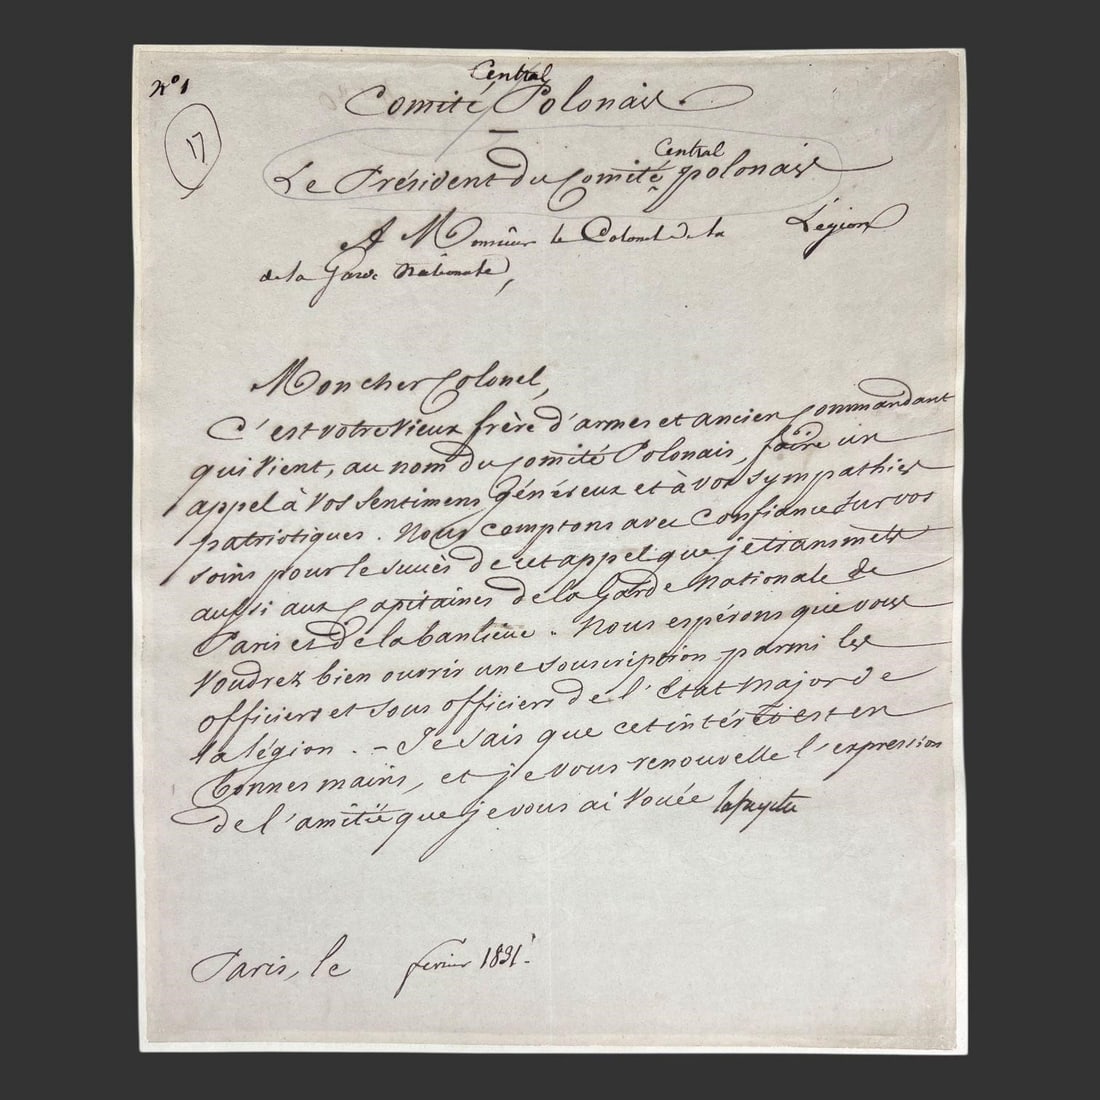 N° 1
17
Central
Comité Polonais.
Central
Le Président du Comité polonais
A Monsieur le Colonel de la Légion
de la Garde Nationale,
Mon cher Colonel,
C'est votre vieux frère d'armes et ancien Commandant
qui vient, au nom du Comité Polonais, faire un
appel à vos sentimens généreux et à vos sympathies
patriotiques. Nous comptons avec confiance sur vos
soins pour le succès de cet appel que je transmets
aussi aux Capitaines de la Garde Nationale de
Paris et de la banlieue. Nous espérons que vous
voudrez bien ouvrir une souscription parmi les
officiers et sous officiers de l'Etat major de
la légion. - Je sais que cet intérêt est en
bonnes mains, et je vous renouvelle l'expression
de l'amitié que je vous ai vouée lafayette
Paris, le février 1831.